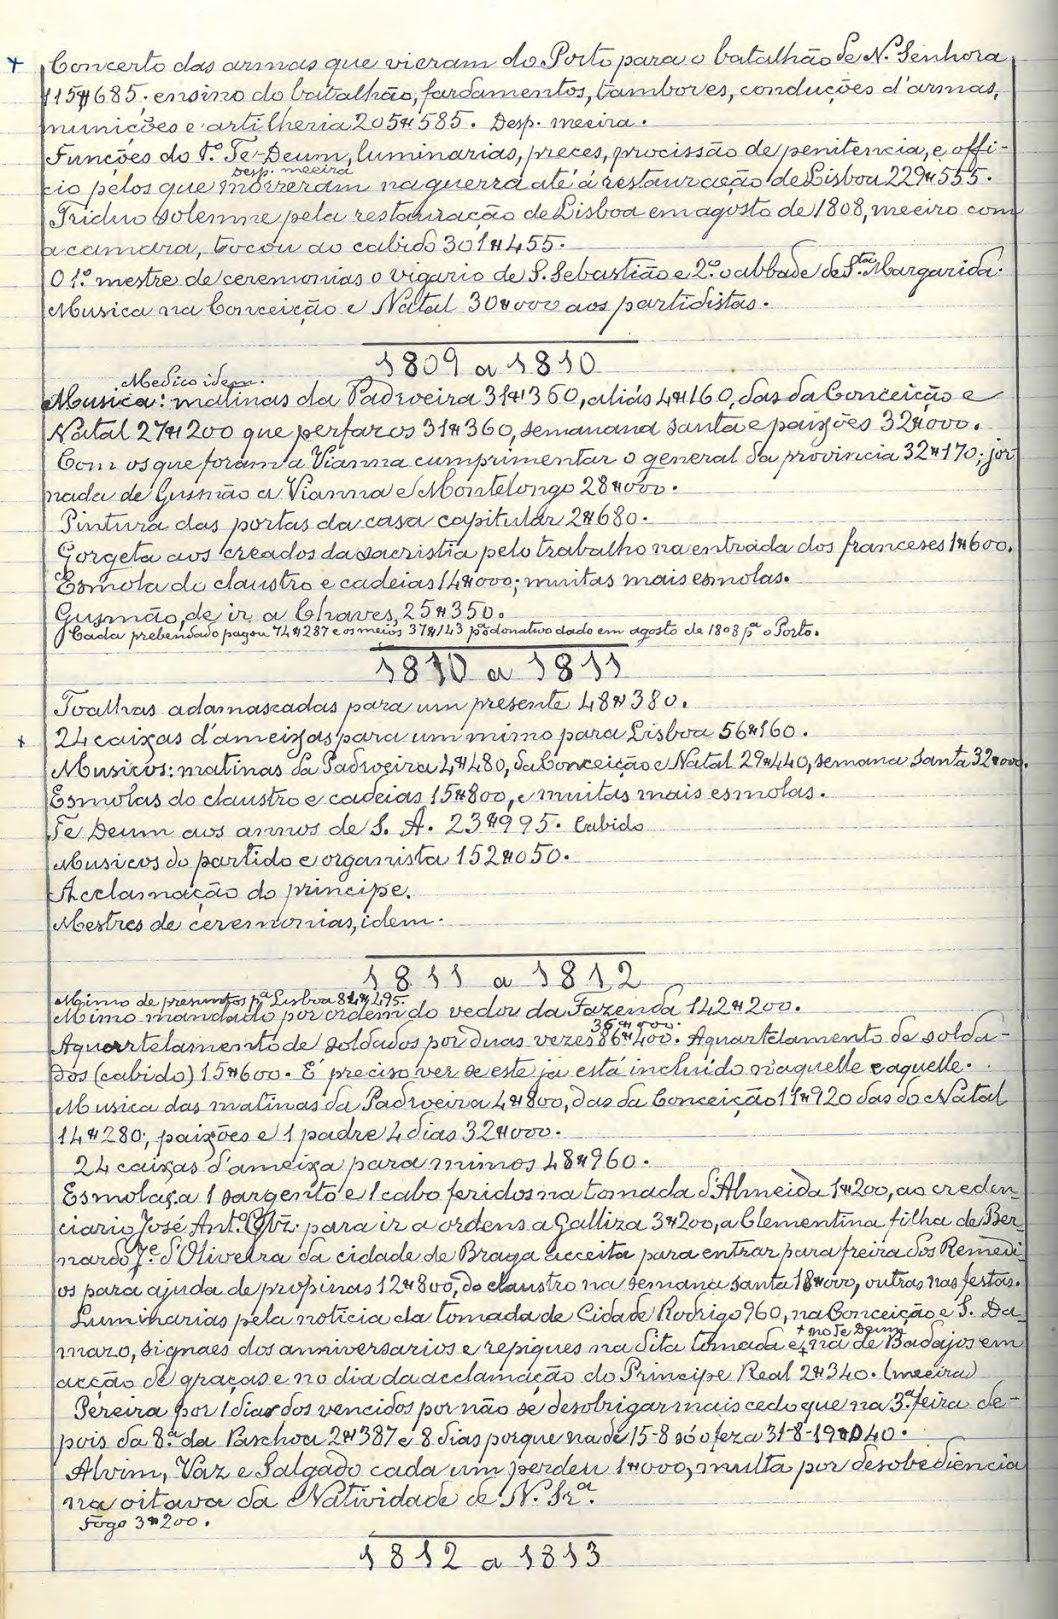 + Concerto das armas que vieram do Porto para o batalhão de N. Senhora
115#685. ensino do batalhão, fardamentos, tambores, conduções d'armas,
munições e artilheria 205#585. Desp. meeira.
Funcões do 1.º Te-Deum, luminarias, preces, procissão de penitencia, e offi-
desp. meeira
cio pelos que morreram na guerra até á restauração de Lisboa 229#555.
Triduo solemne pela restauração de Lisboa em agosto de 1808, meeiro com
a camara, tocou ao cabido 301#455.
O 1.º mestre de ceremonias o vigario de S. Sebastião e 2.º o abbade de Sta. Margarida.
Musica na Conceição e Natal 30#000 aos partidistas.
1809 a 1810
Medico idem.
Musica: matinas da Padroeira 31#360, aliás 4#160, das da Conceição e
Natal 27#200 que perfaz os 31#360, semanana santa e paixões 32#000.
Com os que foram a Vianna cumprimentar o general da provincia 32#170; jor
nada de Gusmão a Vianna e Montelongo 28#000.
Pintura das portas da casa capitular 2#680.
Gorgeta aos creados da sacristia pelo trabalho na entrada dos franceses 1#600.
Esmola do claustro e cadeias 14#000; muitas mais esmolas.
Gusmão, de ir a Chaves, 25#350.
Cada prebendado pagou 74#287 e os meios 37#143 pª o donativo dado em agosto de 1808 pª o Porto.
1810 a 1811
Toalhas adamascadas para um presente 48#380.
+ 24 caixas d'ameixas para um mimo para Lisboa 56#160.
Musicos: matinas da Padroeira 4#480, da Conceição e Natal 29#440, semana santa 32#000.
Esmolas do claustro e cadeias 15#800, e muitas mais esmolas.
Te Deum aos annos de S. A. 23#995. Cabido
Musicos do partido e organista 152#050.
Acclamação do principe.
Mestres de ceremonias, idem.
1811 a 1812
Mimo de presuntos pª Lisboa 81#295.
Mimo mandado por ordem do vedor da Fazenda 142#200.
36#000.
Aquartelamento de soldados por duas vezes 86#400. Aquartelamento de solda-
dos (cabido) 15#600. É preciso ver se este já está incluido n'aquelle e aquelle.
Musica das matinas da Padroeira 4#800, das da Conceição 11#920 das do Natal
14#280; paixões e 1 padre 4 dias 32#000.
24 caixas d'ameixa para mimos 48#960.
Esmolas: a 1 sargento e 1 cabo feridos na tomada d'Almeida 1#200, ao creden
ciario José Ant.º para ir a ordens a Galliza 3#200, a Clementina filha de Ber
nardo J.e d'Oliveira da cidade de Braga acceita para entrar para freira dos Remedi
os para ajuda de propinas 12#800, do claustro na semana santa 18#000, outras nas festas.
Luminarias pela noticia da tomada de Cidade Rodrigo 960, na Conceição e S. Da
+ no Te Deum
maro, signaes dos anniversarios e repiques na dita tomada e + na de Badajos em
acção de graças e no dia da acclamação do Principe Real 2#340. (meeira)
Pereira por 1 dia dos vencidos por não se desobrigar mais cedo que na 3.ª feira de-
pois da 8.ª da Paschoa 2#387 e 8 dias porque na de 15-8 só o fez a 31-8-19#040.
Alvim, Vaz e Salgado cada um perdeu 1#000, multa por desobediencia
na oitava da Natividade de N. Srª.
Fogo 3#200.
1812 a 1813